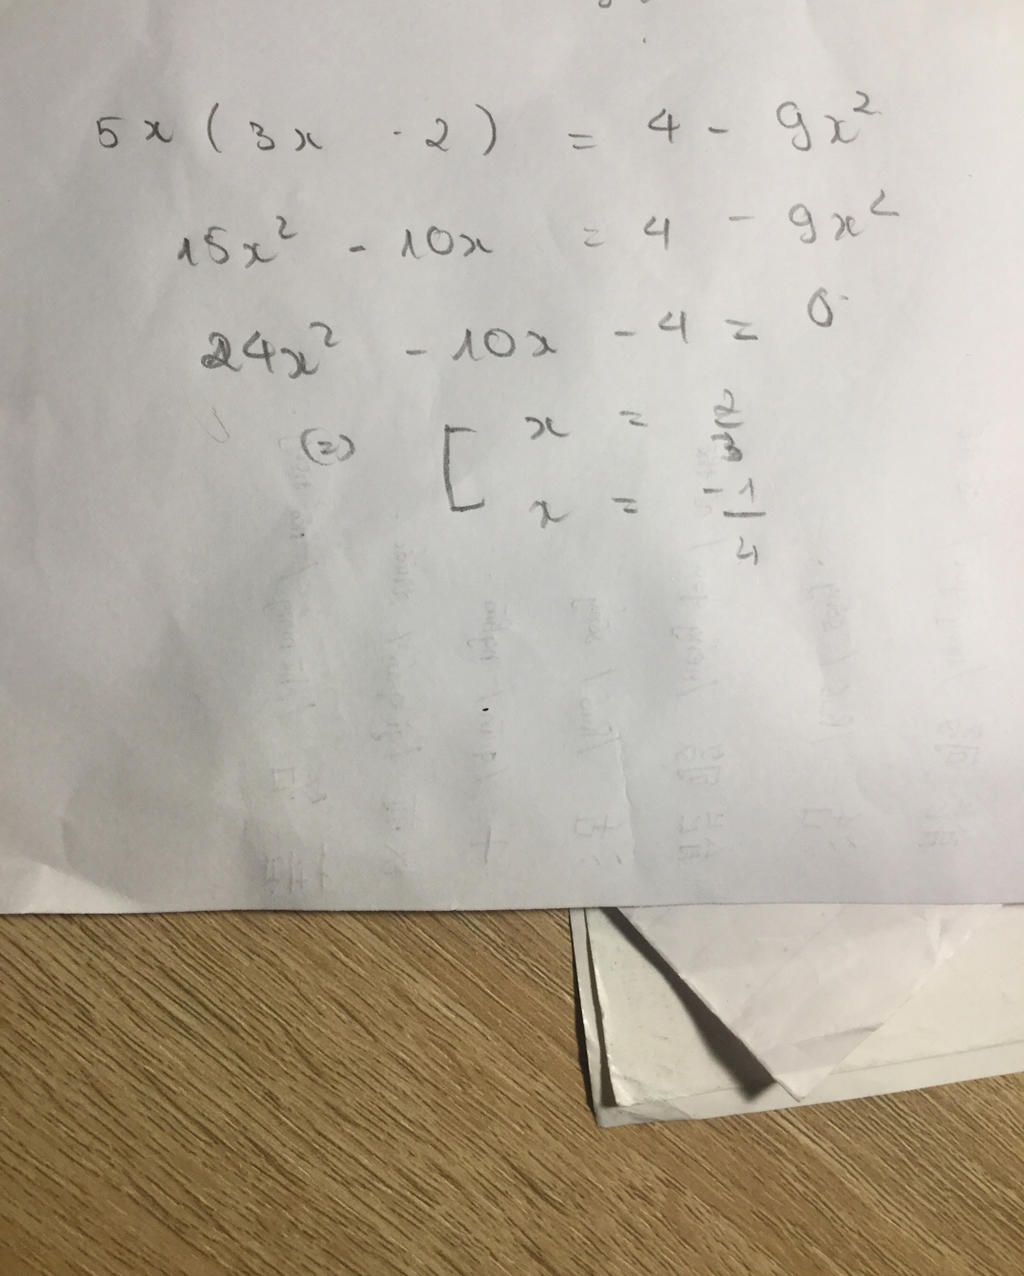 5x(3x - 2) = 4 - 9x²
15x² - 10x = 4 - 9x²
24x² - 10x - 4 = 0
(=) [ x = 2/3
x = -1/4